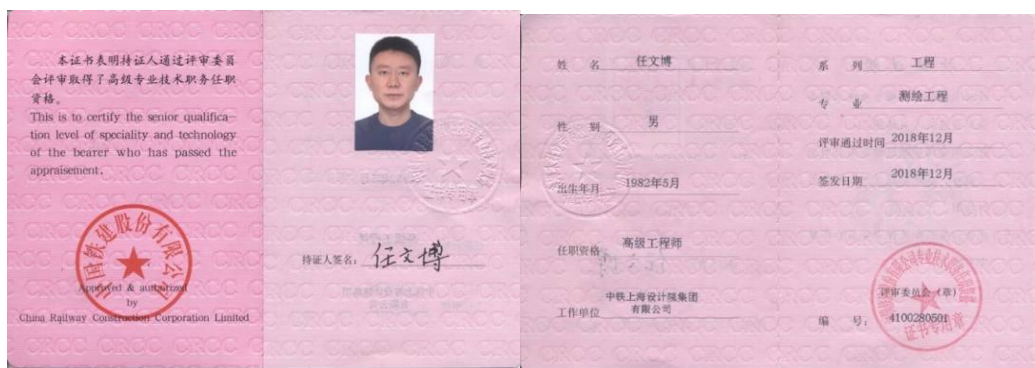 本证书表明持证人通过评审委员
会评审取得了高级专业技术职务任职
资格。
This is to certify the senior qualifica-
tion level of speciality and technology
of the bearer who has passed the
appraisement.
中国铁建股份有限公司
Approved & authorized
by
China Railway Construction Corporation Limited
持证人签名: 任文博
姓 名 任文博
性 别 男
出生年月 1982年5月
任职资格 高级工程师
工作单位 中铁上海设计院集团
有限公司
系 列 工程
专 业 测绘工程
评审通过时间 2018年12月
签发日期 2018年12月
评审委员会(章)
编 号: 4100280501
CRCC CRCC CRCC CRCC